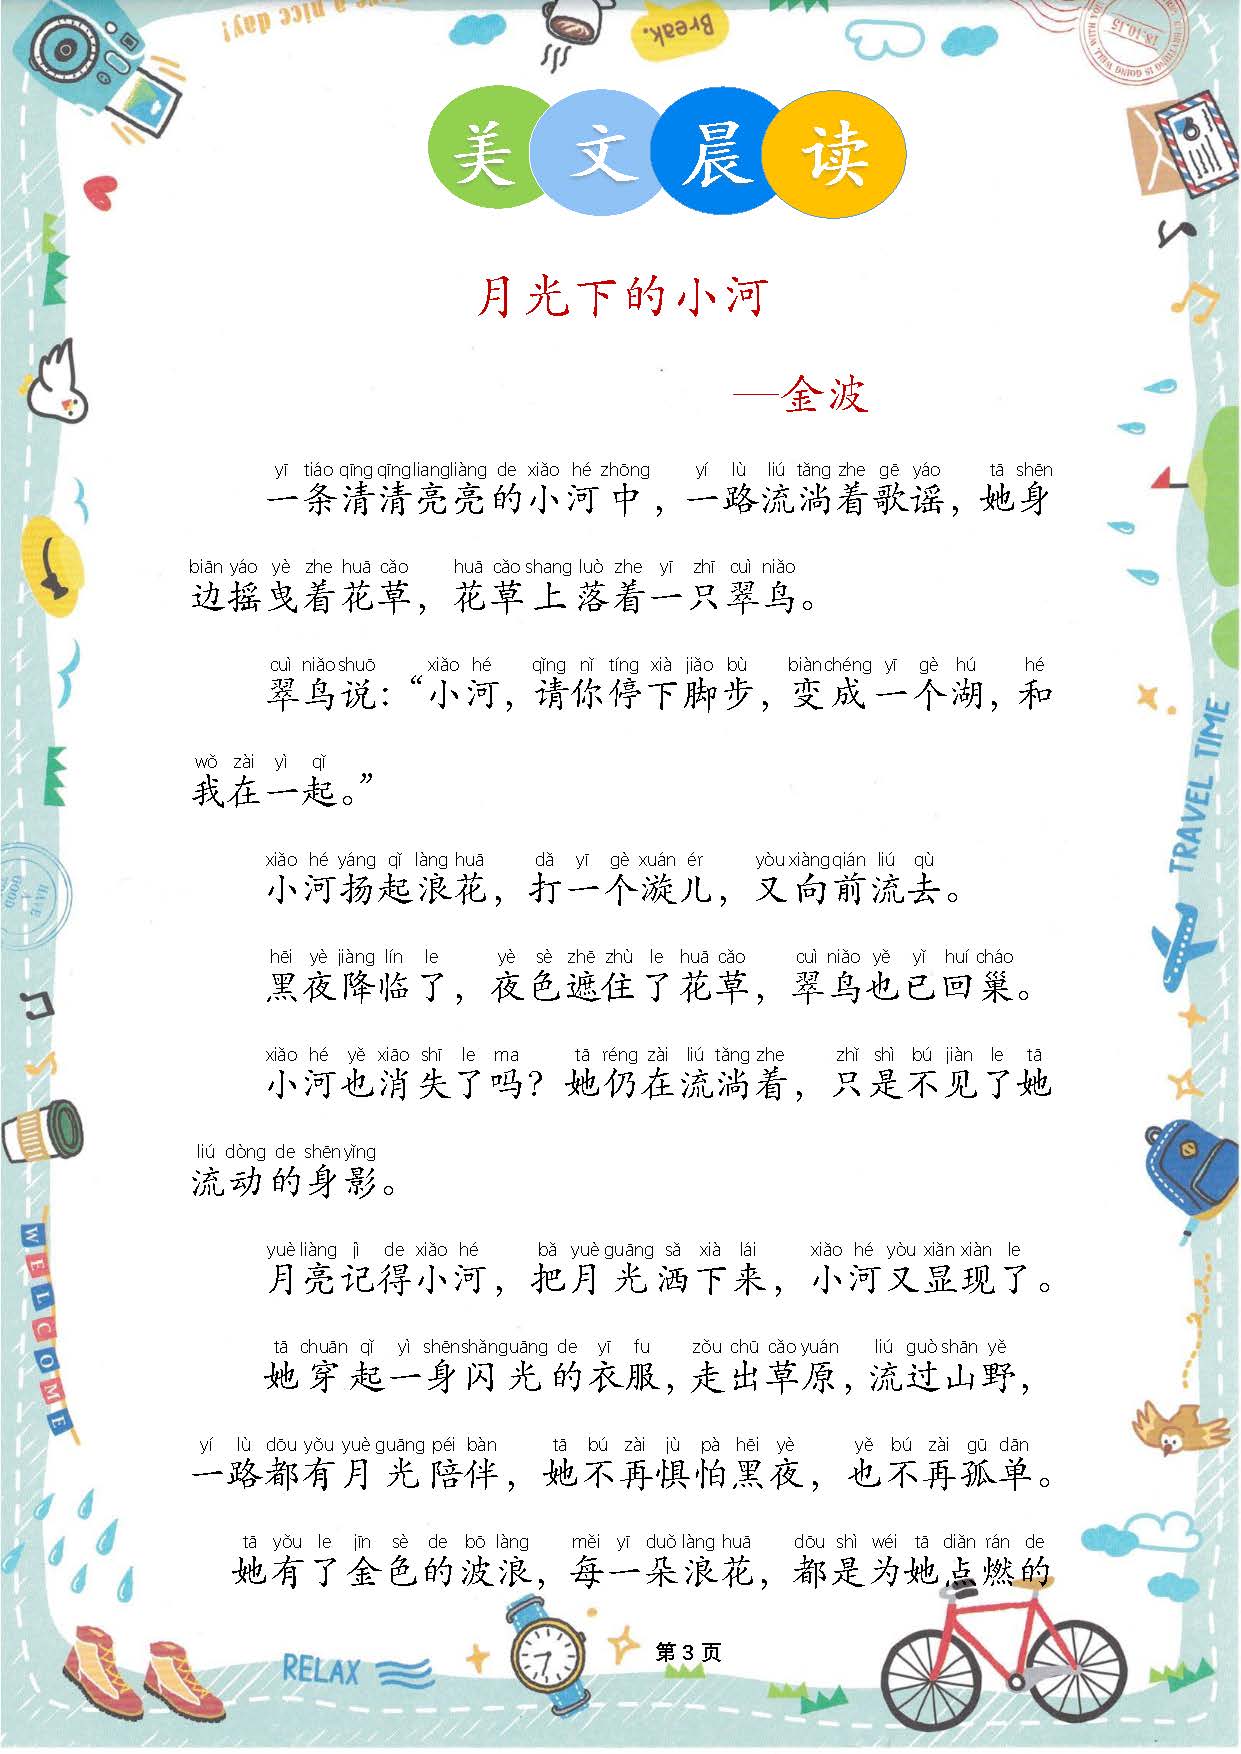 have a nice day!
Break.
18.10.15
美文晨读
月光下的小河
—金波
yī tiáo qīng qīng liang liàng de xiǎo hé zhōng yí lù liú tǎng zhe gē yáo tā shēn
一条清清亮亮的小河中，一路流淌着歌谣，她身
biān yáo yè zhe huā cǎo huā cǎo shang luò zhe yī zhī cuì niǎo
边摇曳着花草，花草上落着一只翠鸟。
cuì niǎo shuō xiǎo hé qǐng nǐ tíng xià jiǎo bù biàn chéng yī gè hú hé
翠鸟说：“小河，请你停下脚步，变成一个湖，和
wǒ zài yì qǐ
我在一起。”
xiǎo hé yáng qǐ làng huā dǎ yī gè xuán ér yòu xiàng qián liú qù
小河扬起浪花，打一个漩儿，又向前流去。
hēi yè jiàng lín le yè sè zhē zhù le huā cǎo cuì niǎo yě yǐ huí cháo
黑夜降临了，夜色遮住了花草，翠鸟也已回巢。
xiǎo hé yě xiāo shī le ma tā réng zài liú tǎng zhe zhǐ shì bú jiàn le tā
小河也消失了吗？她仍在流淌着，只是不见了她
liú dòng de shēn yǐng
流动的身影。
yuè liàng jì de xiǎo hé bǎ yuè guāng sǎ xià lái xiǎo hé yòu xiǎn xiàn le
月亮记得小河，把月光洒下来，小河又显现了。
tā chuān qǐ yì shēn shǎn guāng de yī fu zǒu chū cǎo yuán liú guò shān yě
她穿起一身闪光的衣服，走出草原，流过山野，
yí lù dōu yǒu yuè guāng péi bàn tā bú zài jù pà hēi yè yě bú zài gū dān
一路都有月光陪伴，她不再惧怕黑夜，也不再孤单。
tā yǒu le jīn sè de bō làng měi yī duǒ làng huā dōu shì wéi tā diǎn rán de
她有了金色的波浪，每一朵浪花，都是为她点燃的
第 3 页
TRAVEL TIME
HAVE A GOOD
WELCOME
RELAX